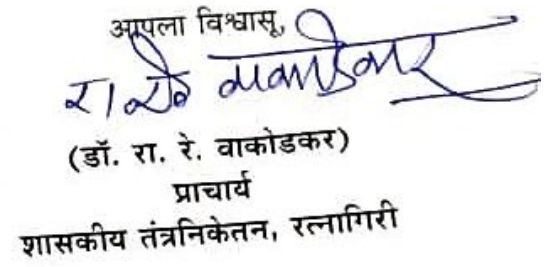 आपला विश्वासू,
(डॉ. रा. रे. वाकोडकर)
प्राचार्य
शासकीय तंत्रनिकेतन, रत्नागिरी